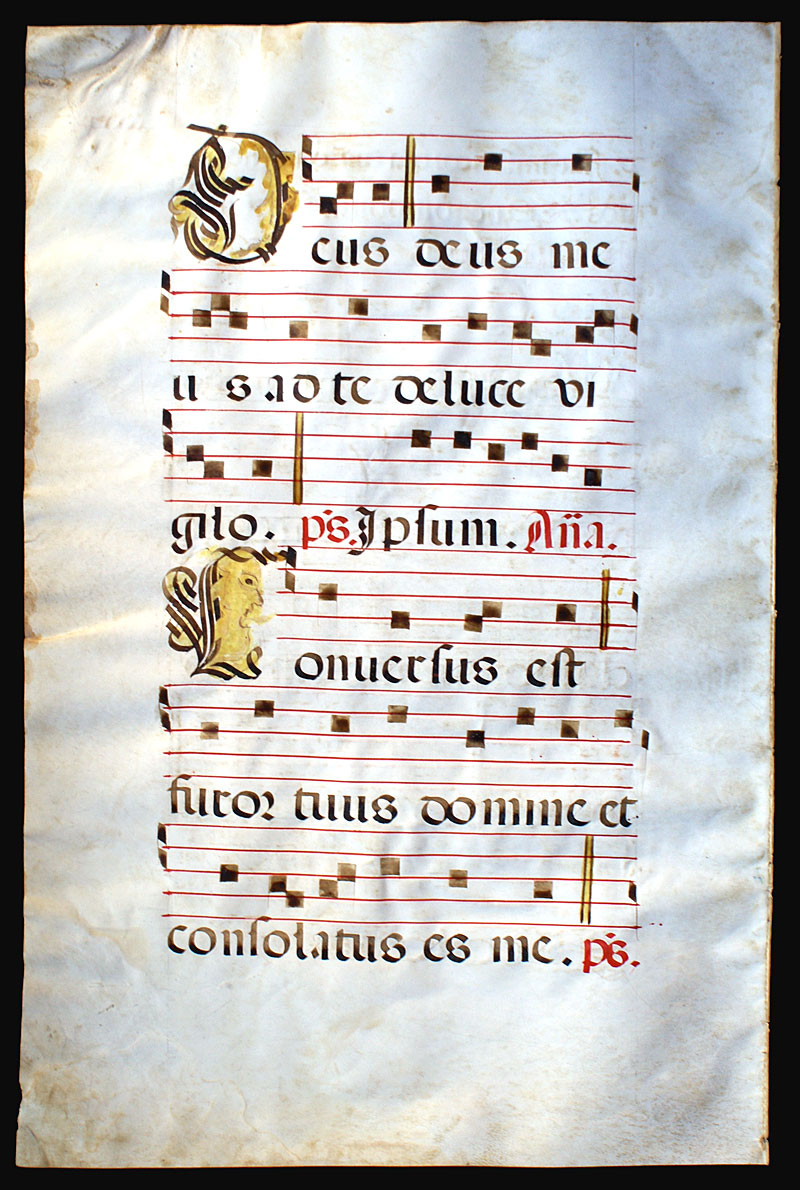 Deus deus me
us ad te de luce vi
gilo. ps. Ipsum. Aña.
Conuersus est
furor tuus domine et
consolatus es me. ps.